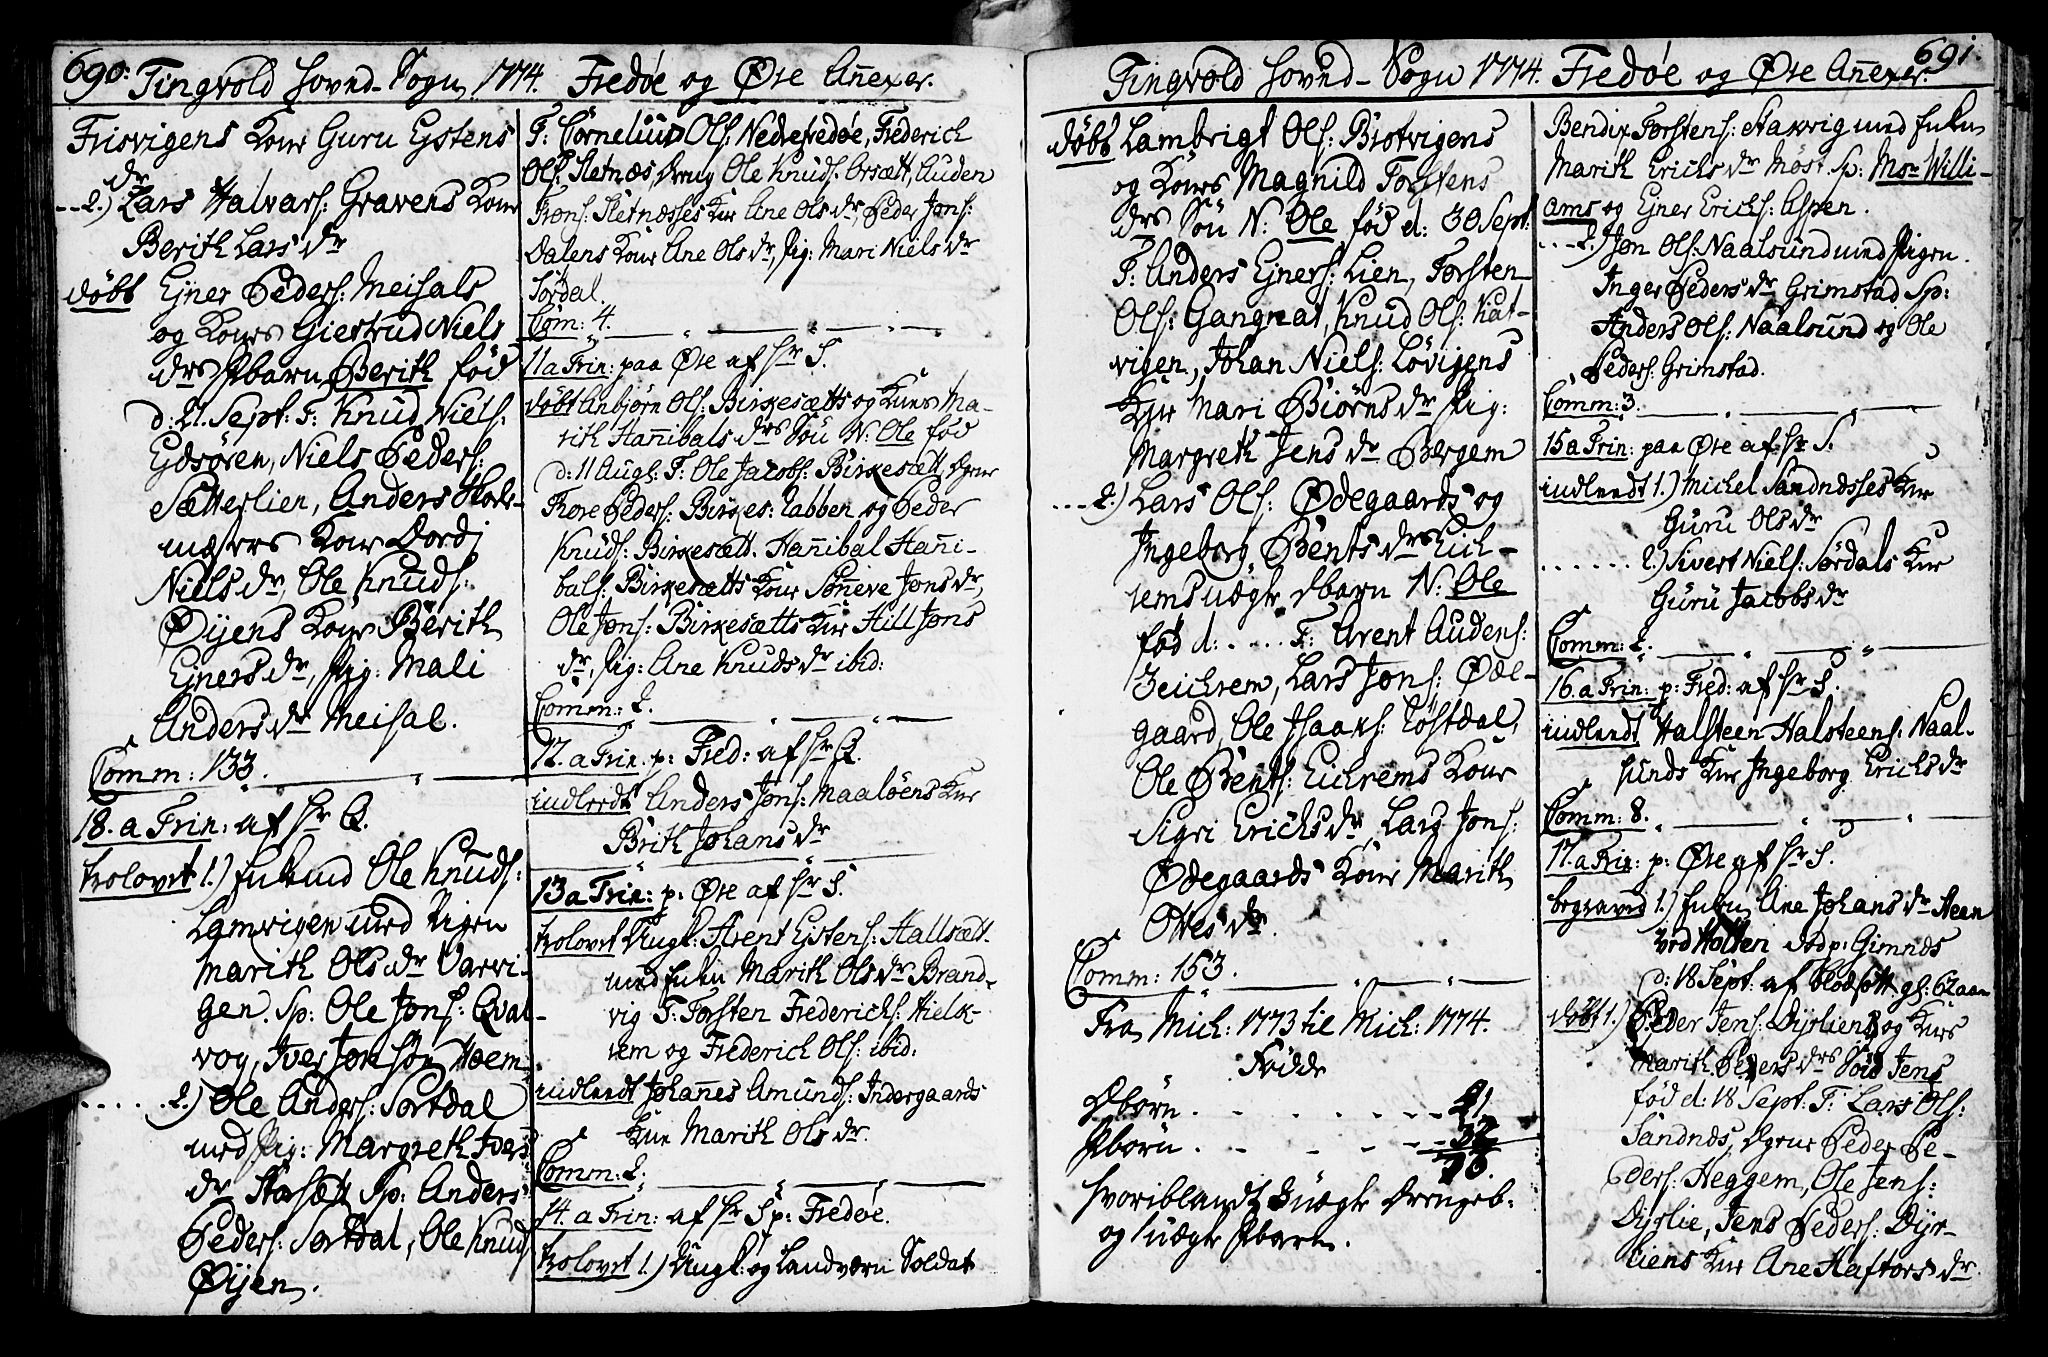 690. Tingvold Hoved-Sogn 1774. Fredøe og Øre Annexer.
Frisvigens Kone Guru Eystens
dr
2.) Lars Halvars: Gravens Kone
Berith Lars dr
døbt Ejner Peders: Meisals
og Kones Giertrud Niels
drs Pbarn Berith fød
d: 21. Sept: F: Knud Niels:
Edsören, Niels Peders:
Sætterlien, Anders
Kone Dordj
Niels dr, Ole Knuds:
Øijens Kone Berith
Ejners dr, Pig: Mali
Anders dr Meisal.
Comm: 133.
18. a Trin: af Hr
trolovet 1.) Enkmd Ole Knuds:
Lamvigen med Pigen
Marith Ols dr Varvi-
gen. Sp: Ole Jons: Qval-
vog, Iver Jonsøn Hoem
2.) Ole Anders: Sortdal
med Pig: Margreth Ivers
dr Aasætt Sp: Anders
Peders: Sortdal, Ole Knuds
Øijen.
F: Cornelius Ols: Nedrefredøe, Frederich
Ols: Sletnæs, Dreng Ole Knuds: Orsætt, Auden
Trons: Sletnæsses Kone Ane Ols dr, Peder Jons:
Dalens Kone Ane Ols dr, Pig: Mari Niels dr
Sördal.
Com: 4.
11 a Trin: paa Øre af Hr S.
døbt Anbjörn Ols: Birkesætts og Kones Ma-
rith Hannibals drs Sön N: Ole fød
d: 11 Aug: F: Ole Jacobs: Birkesætt, Dreng
Tore Peders: Birkes: Rabben og Peder
Knuds: Birkesætt. Hannibal Hanni-
bals: Birkesætts Kone Sönneve Jons dr,
Ole Jons: Birkesætts Kone Hill Jons
dr, Pig: Ane Knuds dr ibid:
Comm: 2.
12. a Trin. p: Fred: af Hr
indleedt Anders Jons: Maalöens Kone
Brith Johans dr
13 a Trin: p: Øre af Hr S.
trolovet Ungk: Arent Eystens: Hallsætt
med Enken Marith Ols dr Brand-
vig F: Torsten Frederichs: Hielk-
rem og Frederich Ols: ibid:
indleedt Johannes Amunds: Indergaards
Kone Marith Ols dr.
Comm: 2.
14. a Trin: af Hr S p: Fredøe.
trolovet 1.) Ungk: og Landværn Soldat
Tingvold Hoved-Sogn 1774. Fredøe og Øre Annexer. 691.
døbt Lambrigt Ols: Brotvigens
og Kones Magnild Torstens
drs Sön N: Ole fød d: 30 Sept:
F: Anders Ejners: Lien, Torsten
Ols: Gangnat, Knud Ols: Kat-
vigen, Johan Niels: Lövigens
Kone Mari Biörns dr Pig:
Margreth Jens dr Bergem
2.) Lars Ols: Ødegaards og
Ingeborg Bents dr Eich-
rems uægte Dbarn N: Ole
fød d: .... F: Arent Audens:
Zeichrem, Lars Jons: Øde-
gaard, Ole Isaaks: Röstdal,
Ole Bents: Eichrems Kone
Sigri Erichs dr, Lars Jons:
Ødegaards Kone Marith
Ottes dr.
Comm: 153.
Fra Mich: 1773 til Mich: 1774.
Födde
Dbörn . . . . . . 41
Pbörn . . . . . 37
78.
hvoriblandt 3 uægte Drengeb:
og 1 uægte Pbarn.
Bendix Torstens: Staxvig med Enken
Marith Erichs dr Möst Sp: Mor Willi-
ams og Ejner Erichs: Aspen.
2.) Jon Ols: Naalsund med Pigen
Inger Peders dr Grimstad Sp:
Anders Ols: Naalsund og Ole
Peders: Grimstad.
Comm: 3.
15 a Trin: paa Øre af Hr S.
indleedt 1.) Michel Sandnæsses Kone
Guru Ols dr
2.) Sivert Niels: Sördals Kone
Guru Jacobs dr
Comm: 2.
16. a Trin: p: Fred: af Hr S.
indleedt Halsteen Halsteens: Naal-
sunds Kone Ingeborg Erichs dr
Comm: 8.
17. a Trin: p: Øre af Hr S.
begraved 1.) Enken Ane Johans dr Heen
ved Holten död p: Gimnæs
d: 18 Sept: af Blodsott gl: 62 aar
døbt 1.) Peder Jens: Dyrliens og Kones
Marith Peders drs Sön Jens
fød d: 18 Sept: F: Lars Ols:
Sandnæs, Dreng Peder Pe-
ders: Heggem, Ole Jens:
Dyrlie, Jens Peders: Dyr-
liens Kone Ane Haftors dr